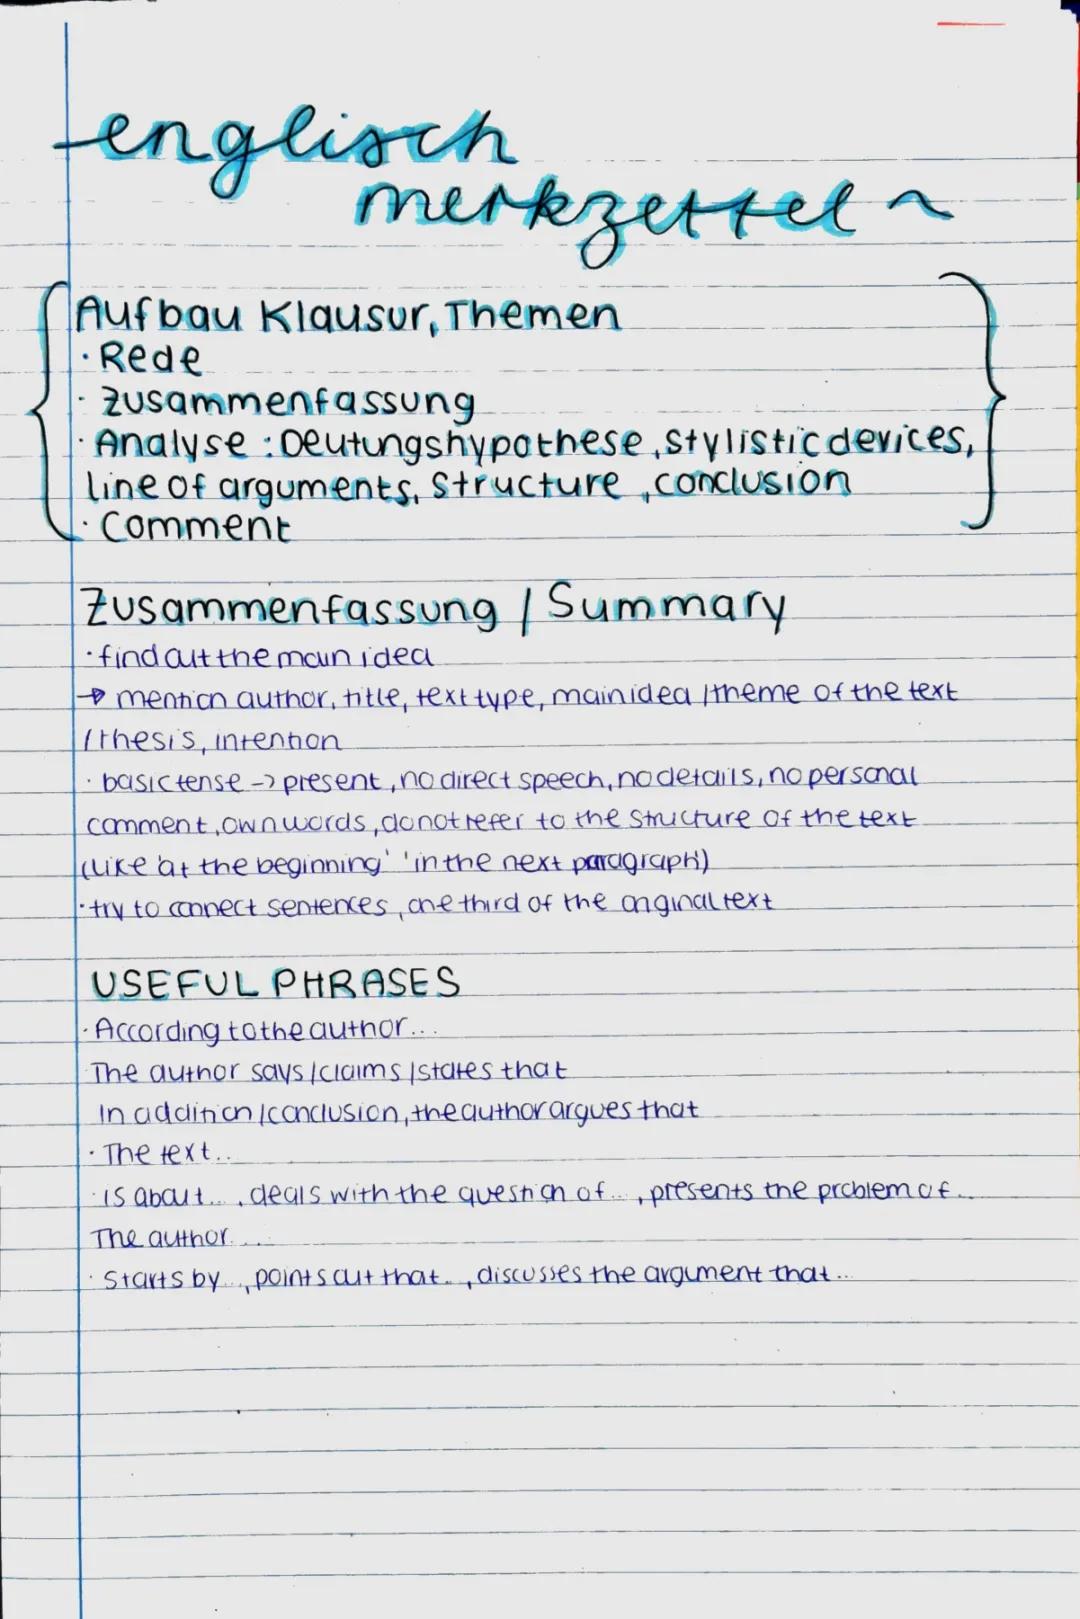 englisch
merkzettel ~
Aufbau Klausur, Themen
· Rede
· Zusammenfassung
· Analyse : Deutungshypothese, stylistic devices,
line of arguments, structure, conclusion
· Comment
Zusammenfassung / Summary
· find out the main idea
→ mention author, title, text type, main idea / theme of the text
/ thesis, intention
· basic tense -> present, no direct speech, no details, no personal
comment, own words, do not refer to the structure of the text
(like 'at the beginning' 'in the next paragraph)
· try to connect sentences, one third of the original text
USEFUL PHRASES
· According to the author...
The author says / claims / states that
In addition / conclusion, the author argues that
· The text..
· is about..., deals with the question of..., presents the problem of..
The author....
· Starts by..., points out that.., discusses the argument that...